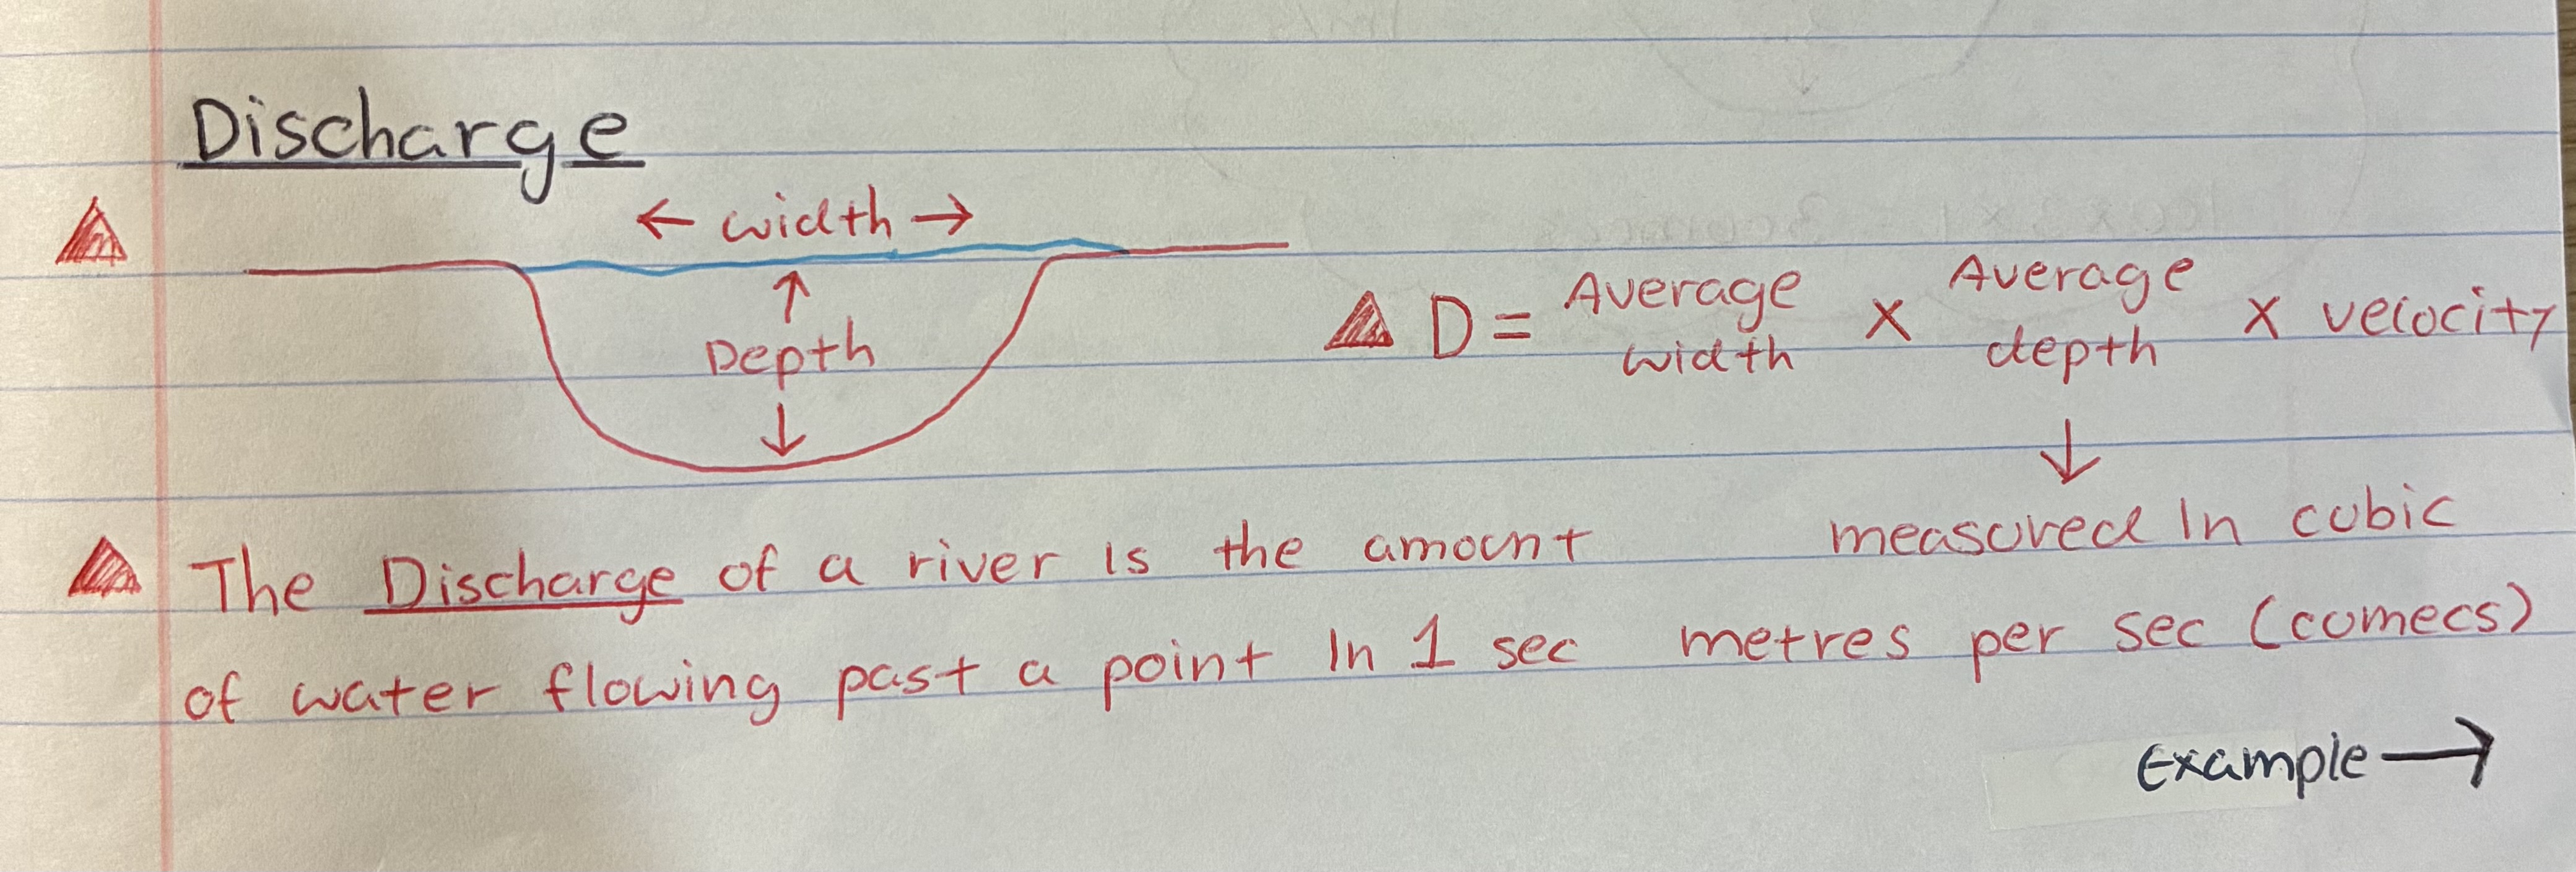 Discharge
← width →
Depth
D = Average width × Average depth × velocity
The Discharge of a river is the amount
of water flowing past a point in 1 sec
measured in cubic
metres per sec (cumecs)
Example →